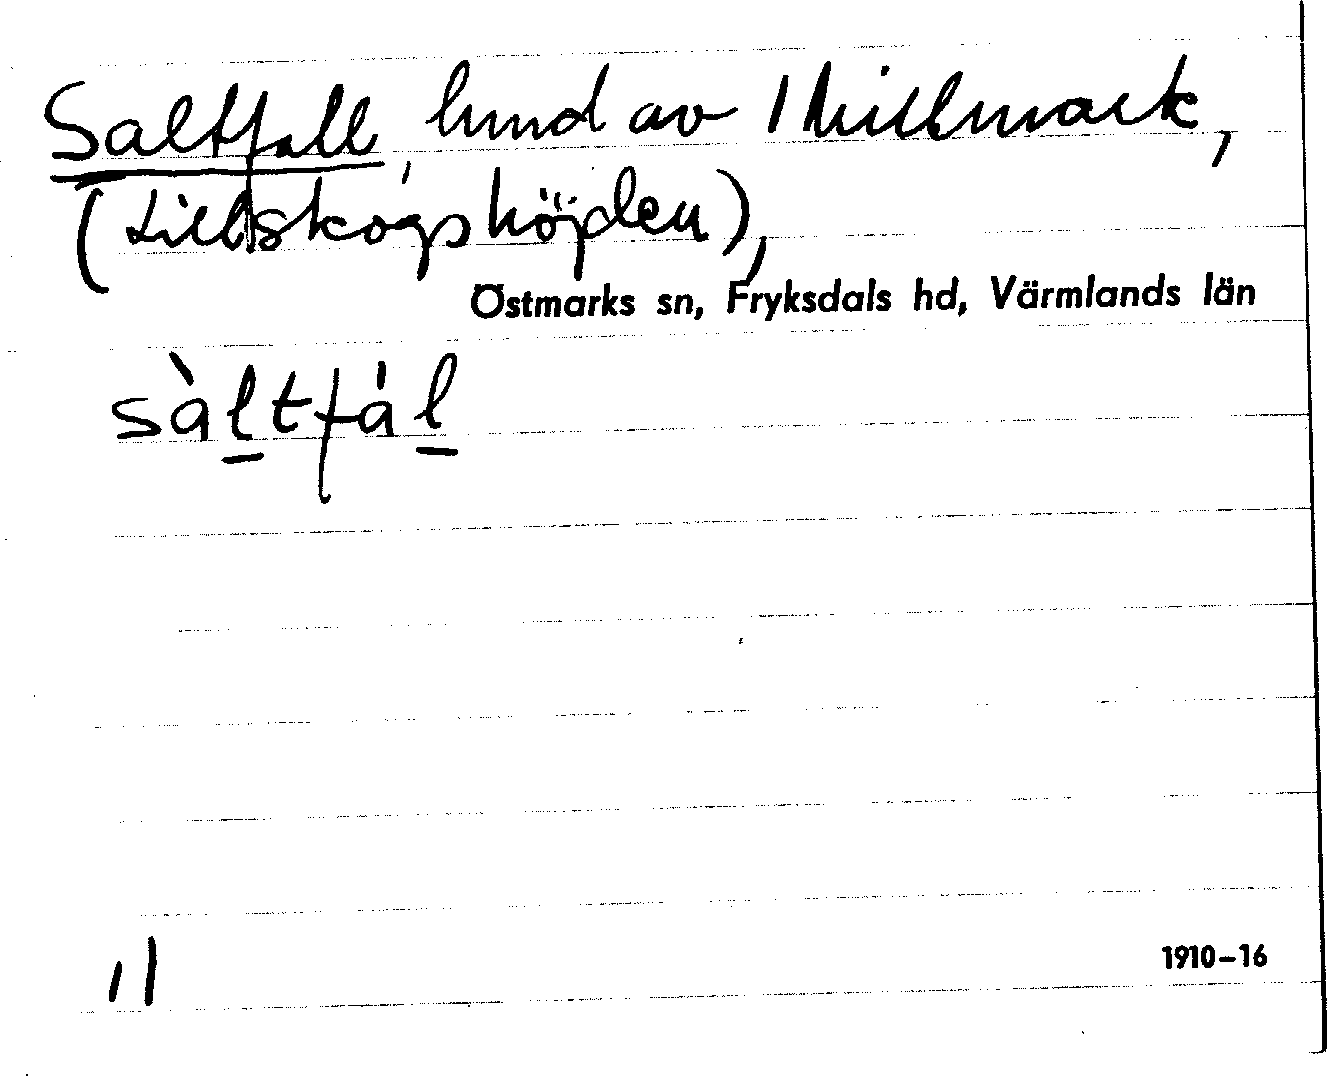 Saltfall, av 1
(Lillskogshöjden),
Östmarks sn, Fryksdals hd, Värmlands län
sàltfál
11
1910–16